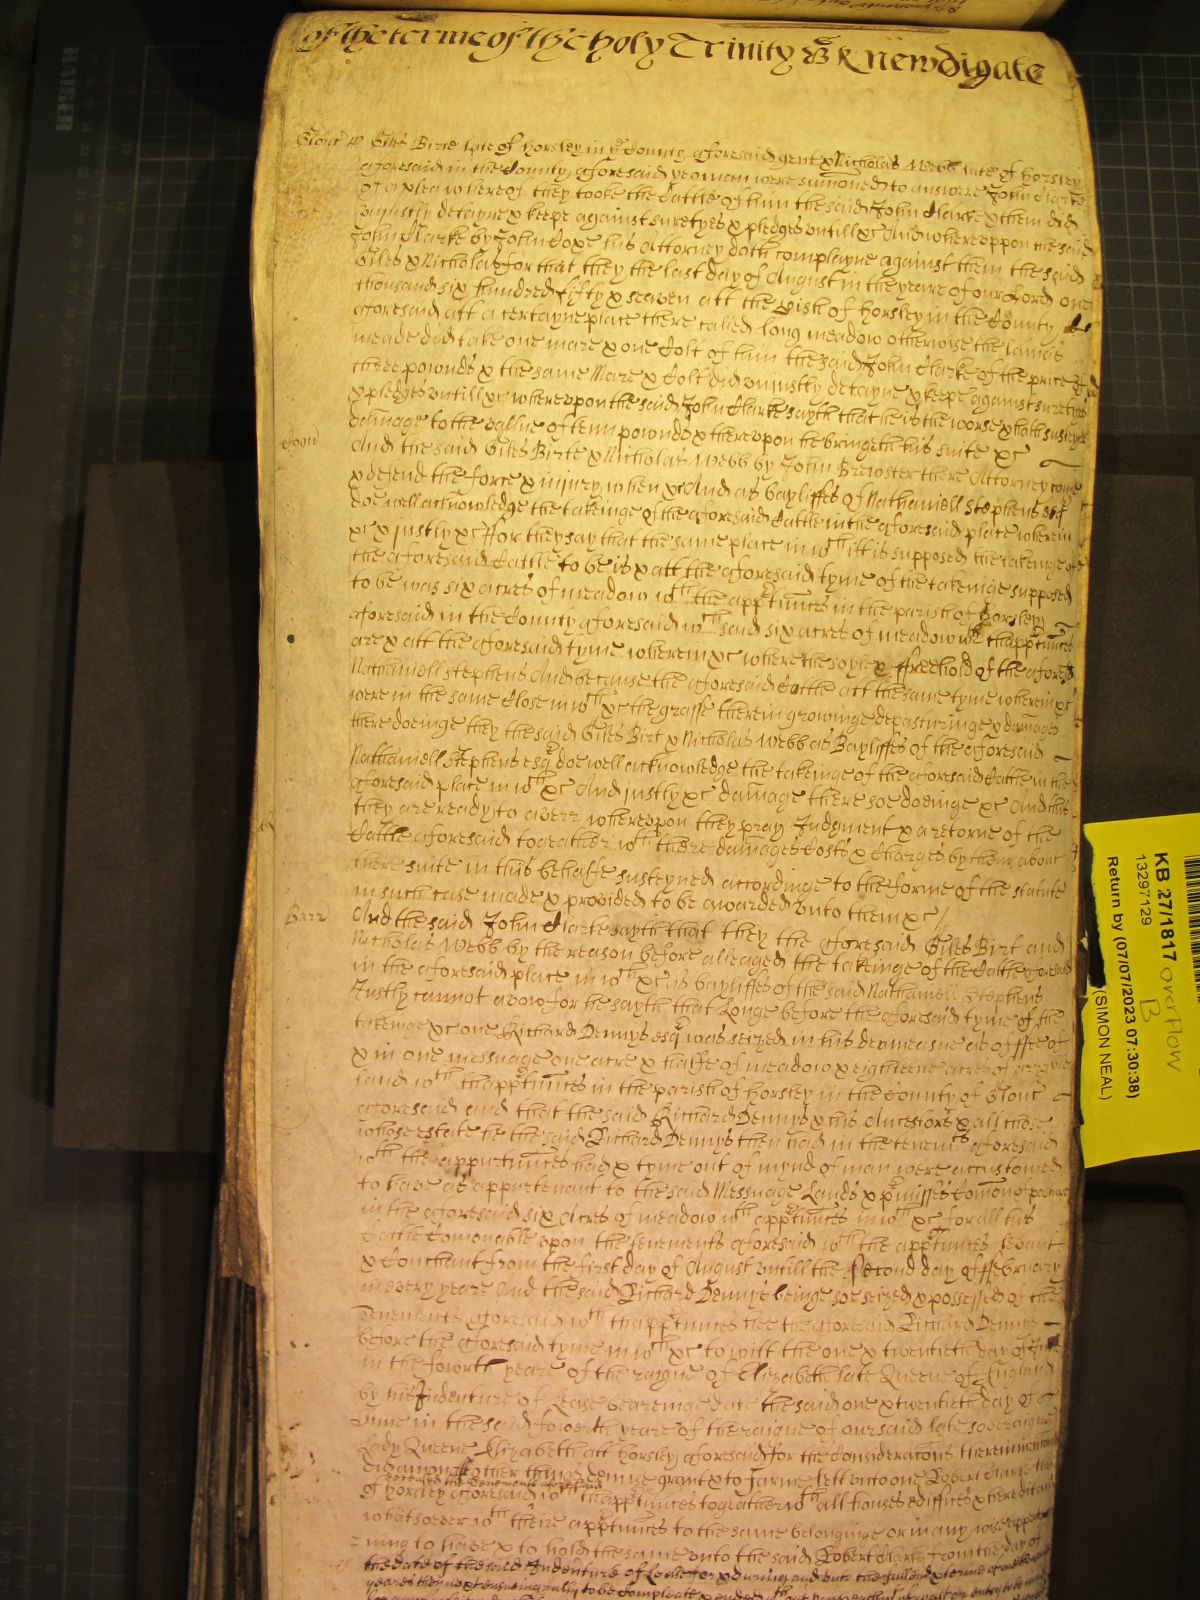 of the terme of the holy Trinity & R newdigate
Glouc ss Giles Birte late of Horsley in ye County aforesaid gent & Nicholas Webb late of Horsley
aforesaid in the County aforesaid yeoman were sumoned to answere John Clarke
of a plea wherefore they tooke the Cattle of him the said John Clarke & them did
uniustly detayne & keepe against suretyes & pledges untill &c And whereuppon the said
John Clarke by John Coxe his Attorney doth complayne against them the said
Giles & Nicholas for that they the last day of August in the yeare of our Lord one
thousand six hundred fifty & seaven att the pish of Horsley in the County
aforesaid att a certayne place there called long meadow otherwise the
meade did take one mare & one Colt of him the said John Clarke of the price of
three pownds & the same Mare & Colt did uniustly detayne & keepe against suretyes
& pledges untill &c whereupon the said John Clarke sayth that he is the worse & hath susteyned
damage to the vallue of tenn pownds & thereupon he bringeth his suite &c
And the said Giles Birte & Nicholas Webb by John Brewster there Attorney come
& defend the force & iniury when &c And as bayliffes of Nathaniell Stephens esq
doe well acknowledge the takeinge of the aforesaid Cattle in the aforesaid place wherein
&c & justly &c ffor they say that the same place in wth it is supposed the takeinge of
the aforesaid Cattle to be is & att the aforesaid tyme of the takeinge supposed
to be was six acres of meadow wth the apptunces in the parish of Horsley
aforesaid in the County aforesaid wch said six acres of meadow wth thapptunces
are & att the aforesaid tyme wherein &c where the soyle & ffreehold of the aforesd
Nathaniell Stephens And because the aforesaid Cattle att the same tyme wherein &c
were in the same Close in wch &c the grasse therein growinge depasturinge & damage
there doeinge they the said Giles Birt & Nicholas Webb as Bayliffes of the aforesaid
Nathaniell Stephens esq doe well acknowledge the takeinge of the aforesaid Cattle in the
aforesaid place in wch &c And justly &c damage there soe doeinge &c And this
they are ready to averr whereupon they pray Judgment & a retorne of the
Cattle aforesaid togeather wth there damages Costs & Charges by them about
there suite in this behalfe susteyned accordinge to the forme of the statute
in such case made & provided to be awarded unto them &c /
Barr And the said John Clarke sayth that they the aforesaid Giles Birt and
Nicholas Webb by the reason before alleaged the takeinge of the Cattle aforesaid
in the aforesaid place in wch &c as bayliffes of the said Nathaniell Stephens
Justly cannot avow for he sayth that Longe before the aforesaid tyme of the
takeinge &c one Richard Dennys esq was seized in his demeasne as of ffee of
& in one messuage one acre & halfe of meadow & eighteene acres of arrable
land wth thapptunces in the parish of Horsley in the County of Glouc
aforesaid and that the said Richard Dennys & his Ancestors & all those
whose estate he the said Richard Dennys then had in the tenemts aforesaid
wth the appurtunces had & tyme out of mynd of man were accustomed
to have as appurtenant to the said Messuage Lands & pmisses Comon of pasture
in the aforesaid six Acres of meadow wth apptunces in wch &c for all his
Cattle Comonable upon the Tenements aforesaid wth the apptunces levant
& Couchant from the first day of August untill the second day of ffebruary
in every yeare And the said Richard Dennys beinge soe seized & possessed of the
Tenements aforesaid wth thapptunces hee the aforesaid Richard Dennys
before the aforesaid tyme in wch &c to witt the one & twentieth day of June
in the fowrth yeare of the raigne of Elizabeth late Queene of England
by his Indenture of Lease beareinge date the said one & twentieth day of
June in the said fowerth yeare of the raigne of our said late soveraigne
Lady Queene Elizabeth att Horsley aforesaid for the Consideracons therein menconed
did amongst other things demise grant & to farme lett unto one Robert Clarke
the Tenements aforesaid
of Horsley aforesaid wth thapptunces togeather wth all houses edifices & hereditaments
whatsoever wth theire apptunces to the same belonginge or in any wise apperteyninge
to have & to hold the same unto the said Robert Clarke from the day of
the date of the said Indenture of Lease for & during and unto the full end & terme of
yeares then next ensueing fully to be compleate & ended
KAISER
KB 27/1817 overflow B
13297129
Return by (07/07/2023 07:30:38)
(SIMON NEAL)